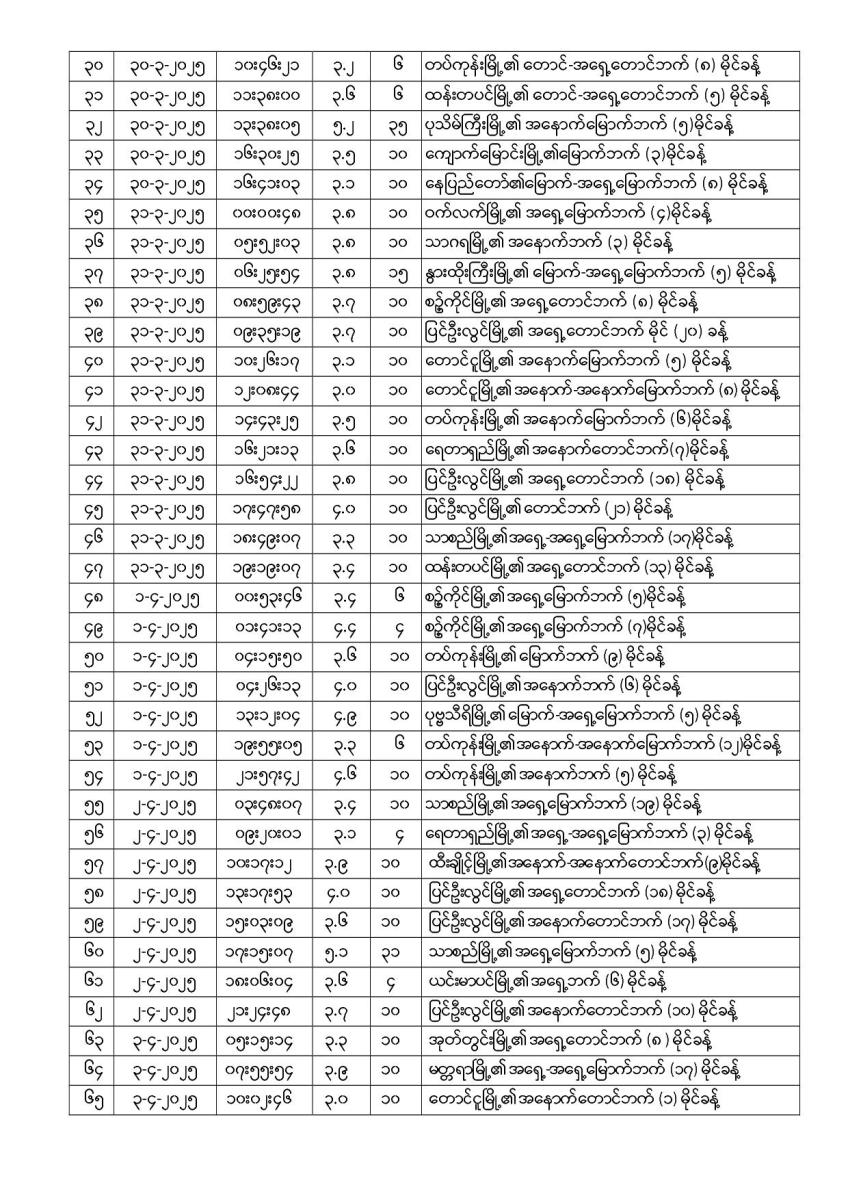 ၃၀ ၃၀-၃-၂၀၂၅ ၁၀း၄၆း၂၁ ၃.၂ ၆ တပ်ကုန်းမြို့၏ တောင်-အရှေ့တောင်ဘက် (၈) မိုင်ခန့်
၃၁ ၃၀-၃-၂၀၂၅ ၁၁း၃၈း၀၀ ၃.၆ ၆ ထန်းတပင်မြို့၏ တောင်-အရှေ့တောင်ဘက် (၅) မိုင်ခန့်
၃၂ ၃၀-၃-၂၀၂၅ ၁၃း၃၈း၀၅ ၅.၂ ၃၅ ပုသိမ်ကြီးမြို့၏ အနောက်မြောက်ဘက် (၅)မိုင်ခန့်
၃၃ ၃၀-၃-၂၀၂၅ ၁၆း၃၀း၂၅ ၃.၅ ၁၀ ကျောက်မြောင်းမြို့၏မြောက်ဘက် (၃)မိုင်ခန့်
၃၄ ၃၀-၃-၂၀၂၅ ၁၆း၄၁း၀၃ ၃.၁ ၁၀ နေပြည်တော်၏မြောက်-အရှေ့မြောက်ဘက် (၈) မိုင်ခန့်
၃၅ ၃၁-၃-၂၀၂၅ ၀၀း၀၀း၄၈ ၃.၈ ၁၀ ဝက်လက်မြို့၏ အရှေ့မြောက်ဘက် (၄)မိုင်ခန့်
၃၆ ၃၁-၃-၂၀၂၅ ၀၅း၅၂း၀၃ ၃.၈ ၁၀ သာဂရမြို့၏ အနောက်ဘက် (၃) မိုင်ခန့်
၃၇ ၃၁-၃-၂၀၂၅ ၀၆း၂၅း၅၄ ၃.၈ ၁၅ နွားထိုးကြီးမြို့၏ မြောက်-အရှေ့မြောက်ဘက် (၅) မိုင်ခန့်
၃၈ ၃၁-၃-၂၀၂၅ ၀၈း၅၉း၄၃ ၃.၇ ၁၀ စဉ့်ကိုင်မြို့၏ အရှေ့တောင်ဘက် (၈) မိုင်ခန့်
၃၉ ၃၁-၃-၂၀၂၅ ၀၉း၃၅း၁၉ ၃.၇ ၁၀ ပြင်ဦးလွင်မြို့၏ အရှေ့တောင်ဘက် မိုင် (၂၀) ခန့်
၄၀ ၃၁-၃-၂၀၂၅ ၁၀း၂၆း၁၇ ၃.၁ ၁၀ တောင်ငူမြို့၏ အနောက်မြောက်ဘက် (၅) မိုင်ခန့်
၄၁ ၃၁-၃-၂၀၂၅ ၁၂း၀၈း၄၄ ၃.၀ ၁၀ တောင်ငူမြို့၏ အနောက်-အနောက်မြောက်ဘက် (၈) မိုင်ခန့်
၄၂ ၃၁-၃-၂၀၂၅ ၁၄း၄၃း၂၅ ၃.၅ ၁၀ တပ်ကုန်းမြို့၏ အနောက်မြောက်ဘက် (၆)မိုင်ခန့်
၄၃ ၃၁-၃-၂၀၂၅ ၁၆း၂၁း၁၃ ၃.၆ ၁၀ ရေတာရှည်မြို့၏ အနောက်တောင်ဘက်(၇)မိုင်ခန့်
၄၄ ၃၁-၃-၂၀၂၅ ၁၆း၅၄း၂၂ ၃.၈ ၁၀ ပြင်ဦးလွင်မြို့၏ အရှေ့တောင်ဘက် (၁၈) မိုင်ခန့်
၄၅ ၃၁-၃-၂၀၂၅ ၁၇း၄၇း၅၈ ၄.၀ ၁၀ ပြင်ဦးလွင်မြို့၏ တောင်ဘက် (၂၁) မိုင်ခန့်
၄၆ ၃၁-၃-၂၀၂၅ ၁၈း၄၉း၀၇ ၃.၃ ၁၀ သာစည်မြို့၏ အရှေ့-အရှေ့မြောက်ဘက် (၁၇)မိုင်ခန့်
၄၇ ၃၁-၃-၂၀၂၅ ၁၉း၁၉း၀၇ ၃.၄ ၁၀ ထန်းတပင်မြို့၏ အရှေ့တောင်ဘက် (၁၃) မိုင်ခန့်
၄၈ ၁-၄-၂၀၂၅ ၀၀း၅၃း၄၆ ၃.၄ ၆ စဉ့်ကိုင်မြို့၏ အရှေ့မြောက်ဘက် (၅)မိုင်ခန့်
၄၉ ၁-၄-၂၀၂၅ ၀၁း၄၁း၁၃ ၄.၄ ၄ စဉ့်ကိုင်မြို့၏ အရှေ့မြောက်ဘက် (၇)မိုင်ခန့်
၅၀ ၁-၄-၂၀၂၅ ၀၄း၁၅း၅၀ ၃.၆ ၁၀ တပ်ကုန်းမြို့၏ မြောက်ဘက် (၉) မိုင်ခန့်
၅၁ ၁-၄-၂၀၂၅ ၀၄း၂၆း၁၃ ၄.၀ ၁၀ ပြင်ဦးလွင်မြို့၏ အနောက်ဘက် (၆) မိုင်ခန့်
၅၂ ၁-၄-၂၀၂၅ ၁၃း၁၂း၀၄ ၄.၉ ၁၀ ပုဗ္ဗသီရိမြို့၏ မြောက်-အရှေ့မြောက်ဘက် (၅) မိုင်ခန့်
၅၃ ၁-၄-၂၀၂၅ ၁၉း၅၅း၀၅ ၃.၃ ၆ တပ်ကုန်းမြို့၏ အနောက်-အနောက်မြောက်ဘက် (၁၂)မိုင်ခန့်
၅၄ ၁-၄-၂၀၂၅ ၂၁း၅၇း၄၂ ၄.၆ ၁၀ တပ်ကုန်းမြို့၏ အနောက်ဘက် (၅) မိုင်ခန့်
၅၅ ၂-၄-၂၀၂၅ ၀၃း၄၈း၀၇ ၃.၄ ၁၀ သာစည်မြို့၏ အရှေ့မြောက်ဘက် (၁၉) မိုင်ခန့်
၅၆ ၂-၄-၂၀၂၅ ၀၉း၂၀း၀၁ ၃.၁ ၄ ရေတာရှည်မြို့၏ အရှေ့-အရှေ့မြောက်ဘက် (၃) မိုင်ခန့်
၅၇ ၂-၄-၂၀၂၅ ၁၀း၁၇း၁၂ ၃.၉ ၁၀ ထီးချိုင့်မြို့၏ အနောက်-အနောက်တောင်ဘက်(၉)မိုင်ခန့်
၅၈ ၂-၄-၂၀၂၅ ၁၃း၁၇း၅၃ ၄.၀ ၁၀ ပြင်ဦးလွင်မြို့၏ အရှေ့တောင်ဘက် (၁၈) မိုင်ခန့်
၅၉ ၂-၄-၂၀၂၅ ၁၅း၀၃း၀၉ ၃.၆ ၁၀ ပြင်ဦးလွင်မြို့၏ အနောက်တောင်ဘက် (၁၇) မိုင်ခန့်
၆၀ ၂-၄-၂၀၂၅ ၁၇း၁၅း၀၇ ၅.၁ ၃၁ သာစည်မြို့၏ အရှေ့မြောက်ဘက် (၅) မိုင်ခန့်
၆၁ ၂-၄-၂၀၂၅ ၁၈း၀၆း၀၄ ၃.၆ ၄ ယင်းမာပင်မြို့၏ အရှေ့ဘက် (၆) မိုင်ခန့်
၆၂ ၂-၄-၂၀၂၅ ၂၁း၂၄း၄၈ ၃.၇ ၁၀ ပြင်ဦးလွင်မြို့၏ အနောက်တောင်ဘက် (၁၀) မိုင်ခန့်
၆၃ ၃-၄-၂၀၂၅ ၀၅း၁၅း၁၄ ၃.၃ ၁၀ အုတ်တွင်းမြို့၏ အရှေ့တောင်ဘက် (၈ ) မိုင်ခန့်
၆၄ ၃-၄-၂၀၂၅ ၀၇း၅၅း၅၄ ၃.၉ ၁၀ မတ္တရာမြို့၏ အရှေ့-အရှေ့မြောက်ဘက် (၁၇) မိုင်ခန့်
၆၅ ၃-၄-၂၀၂၅ ၁၀း၀၂း၄၆ ၃.၀ ၁၀ တောင်ငူမြို့၏ အနောက်တောင်ဘက် (၁) မိုင်ခန့်